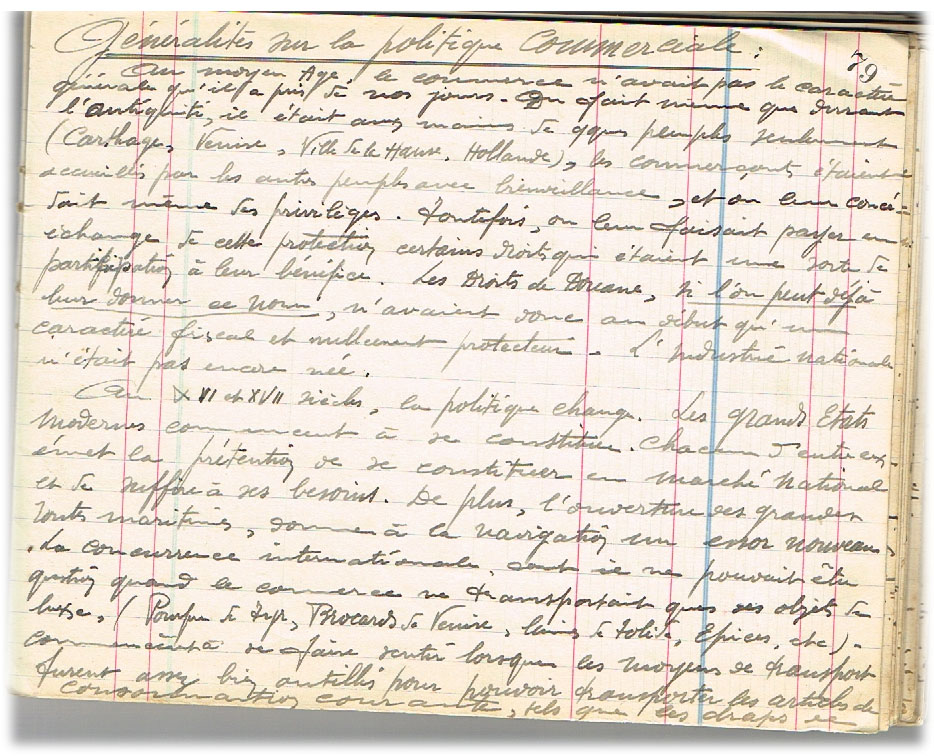 Généralités sur la politique Commerciale :
79
Au moyen Age, le commerce n'avait pas le caractère
générale qu'il a pris de nos jours. Du fait même que durant
l'antiquité, il était aux mains de qques peuples seulement
(Carthage, Venise, Ville de la Hanse, Hollande), les commerçants étaient
accueillis par les autres peuples avec bienveillance, et on leur concé-
dait même des privilèges. Toutefois, on leur faisait payer en
échange de cette protection certains droits qui étaient une sorte de
participation à leur bénéfice. Les Droits de Douane, si l'on peut déjà
leur donner ce nom, n'avaient donc au début qu'un
caractère fiscal et nullement protecteur. L'Industrie nationale
n'était pas encore née.
Au XVI et XVII siècles, la politique change. Les grands Etats
modernes commencent à se constituer. Chacun d'entre eux
émet la prétention de se constituer en marché National
et de suffire à ses besoins. De plus, l'ouverture des grandes
routes maritimes, donne à la navigation un essor nouveau.
La concurrence internationale, dont il ne pouvait être
question quand le commerce ne transportait que des objets de
luxe, (Pourpre de Tyr, Brocards de Venise, laines de Tolède, Epices, etc).
commencent à se faire sentir lorsque les moyens de transport
furent assez bien outillés pour pouvoir transporter les articles de
consommation courante, tels que les draps et